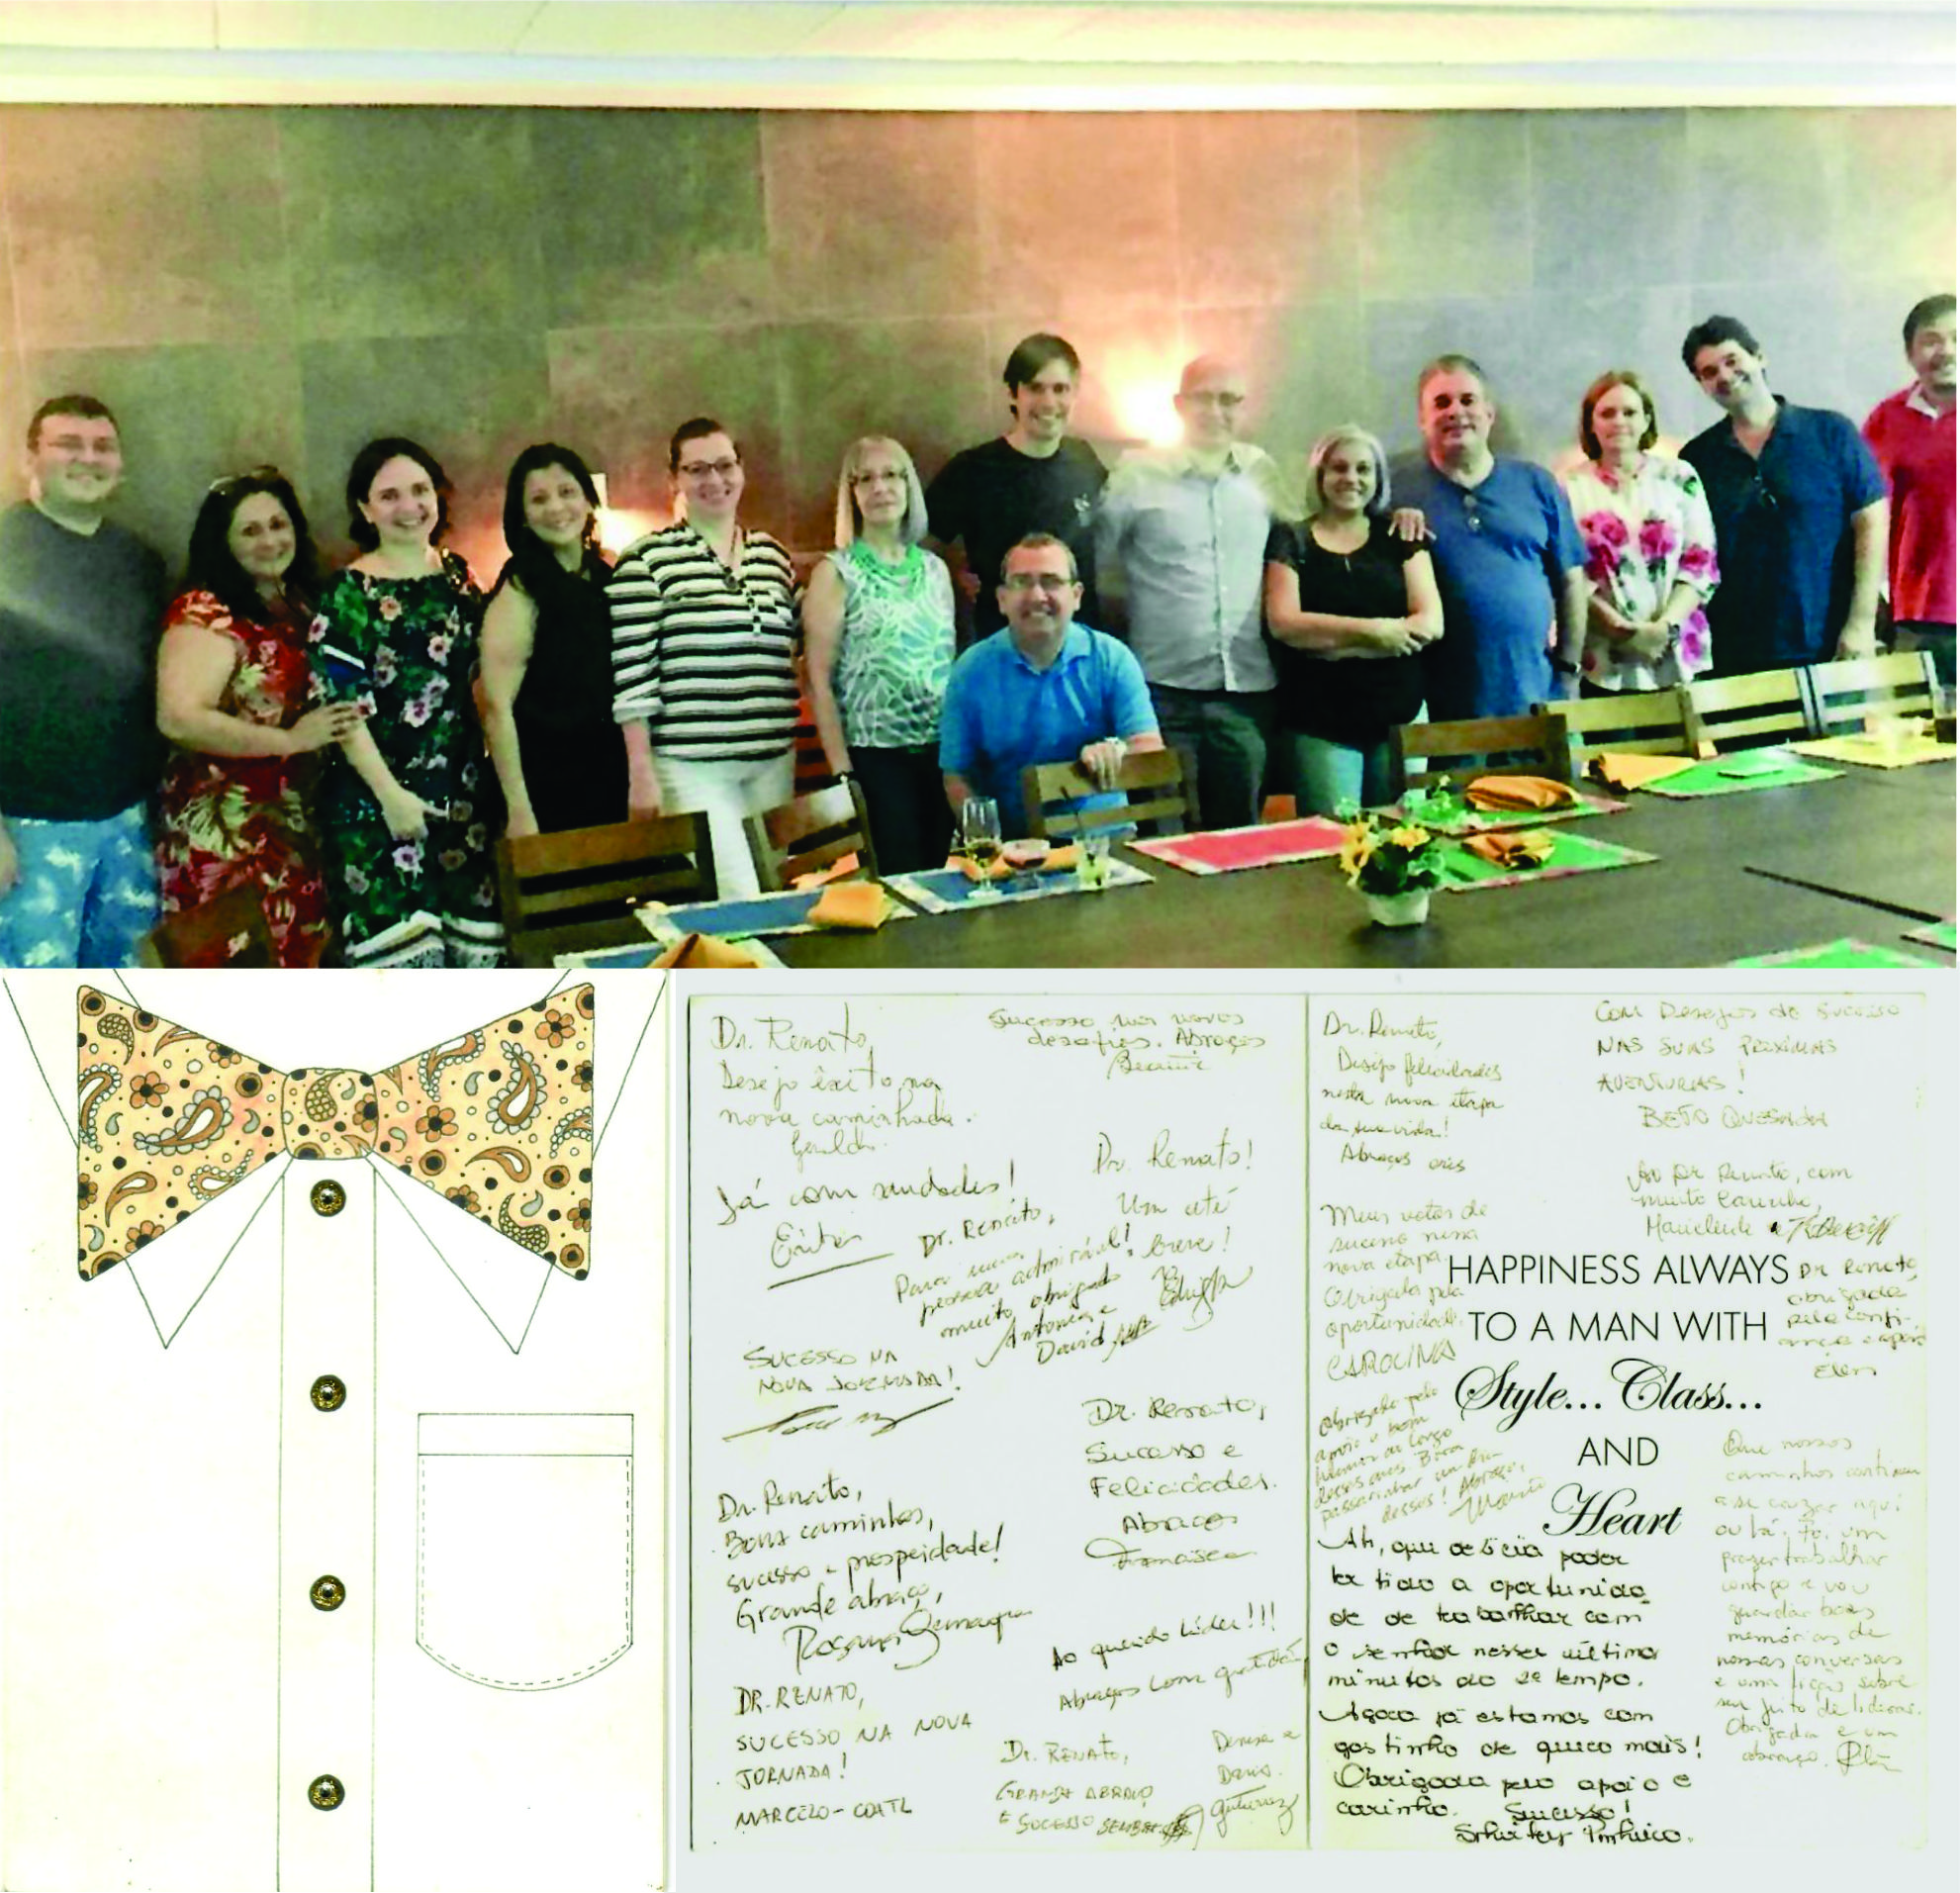 Dr. Renato,
Desejo êxito na
nova caminhada.
Sucesso nos novos
desafios. Abraços
Já com saudades!
Dr. Renato!
Um até
breve!
Dr. Renato,
Para uma
pessoa admirável!
muito obrigado
Antonia e
David
SUCESSO NA
NOVA JORNADA!
Dr. Renato,
Sucesso e
Felicidades.
Abraços
Francisco
Dr. Renato,
Bons caminhos,
sucesso e prosperidade!
Grande abraço,
Rosana
Ao querido Líder!!!
Abraços com gratidão
DR. RENATO,
SUCESSO NA NOVA
JORNADA!
MARCELO - COATL
Dr. RENATO,
GRANDE ABRAÇO
E SUCESSO SEMPRE
Denise e
Dario
Gutierrez
Dr. Renato,
Desejo felicidades
nesta nova etapa
da sua vida!
Abraços
COM Desejos de Sucesso
NAS SUAS PROXIMAS
AVENTURAS!
BETO QUESADA
Ao Dr Renato, com
muito carinho,
Meus votos de
sucesso nessa
nova etapa.
Obrigada pela
oportunidade.
CAROLINA
HAPPINESS ALWAYS
TO A MAN WITH
Style... Class...
AND
Heart
Dr Renato,
obrigada
pela confi-
ança e apoio
Élen
Obrigado pelo
apoio e bom
humor ao longo
desses anos. Bora
passarinhar um dia
desses! Abraço,
Ah, que delícia poder
ter tido a oportunida
de de trabalhar com
o senhor nesses últimos
minutos do 2º tempo.
Agora já estamos com
gostinho de quero mais!
Obrigada pelo apoio e
carinho. Sucesso!
Shirley Pinheiro.
Que nossos
caminhos continuem
a se cruzar aqui
ou lá. Foi um
prazer trabalhar
contigo e vou
guardar boas
memórias de
nossas conversas
e uma lição sobre
seu jeito de liderar.
Obrigada e um
abraço.